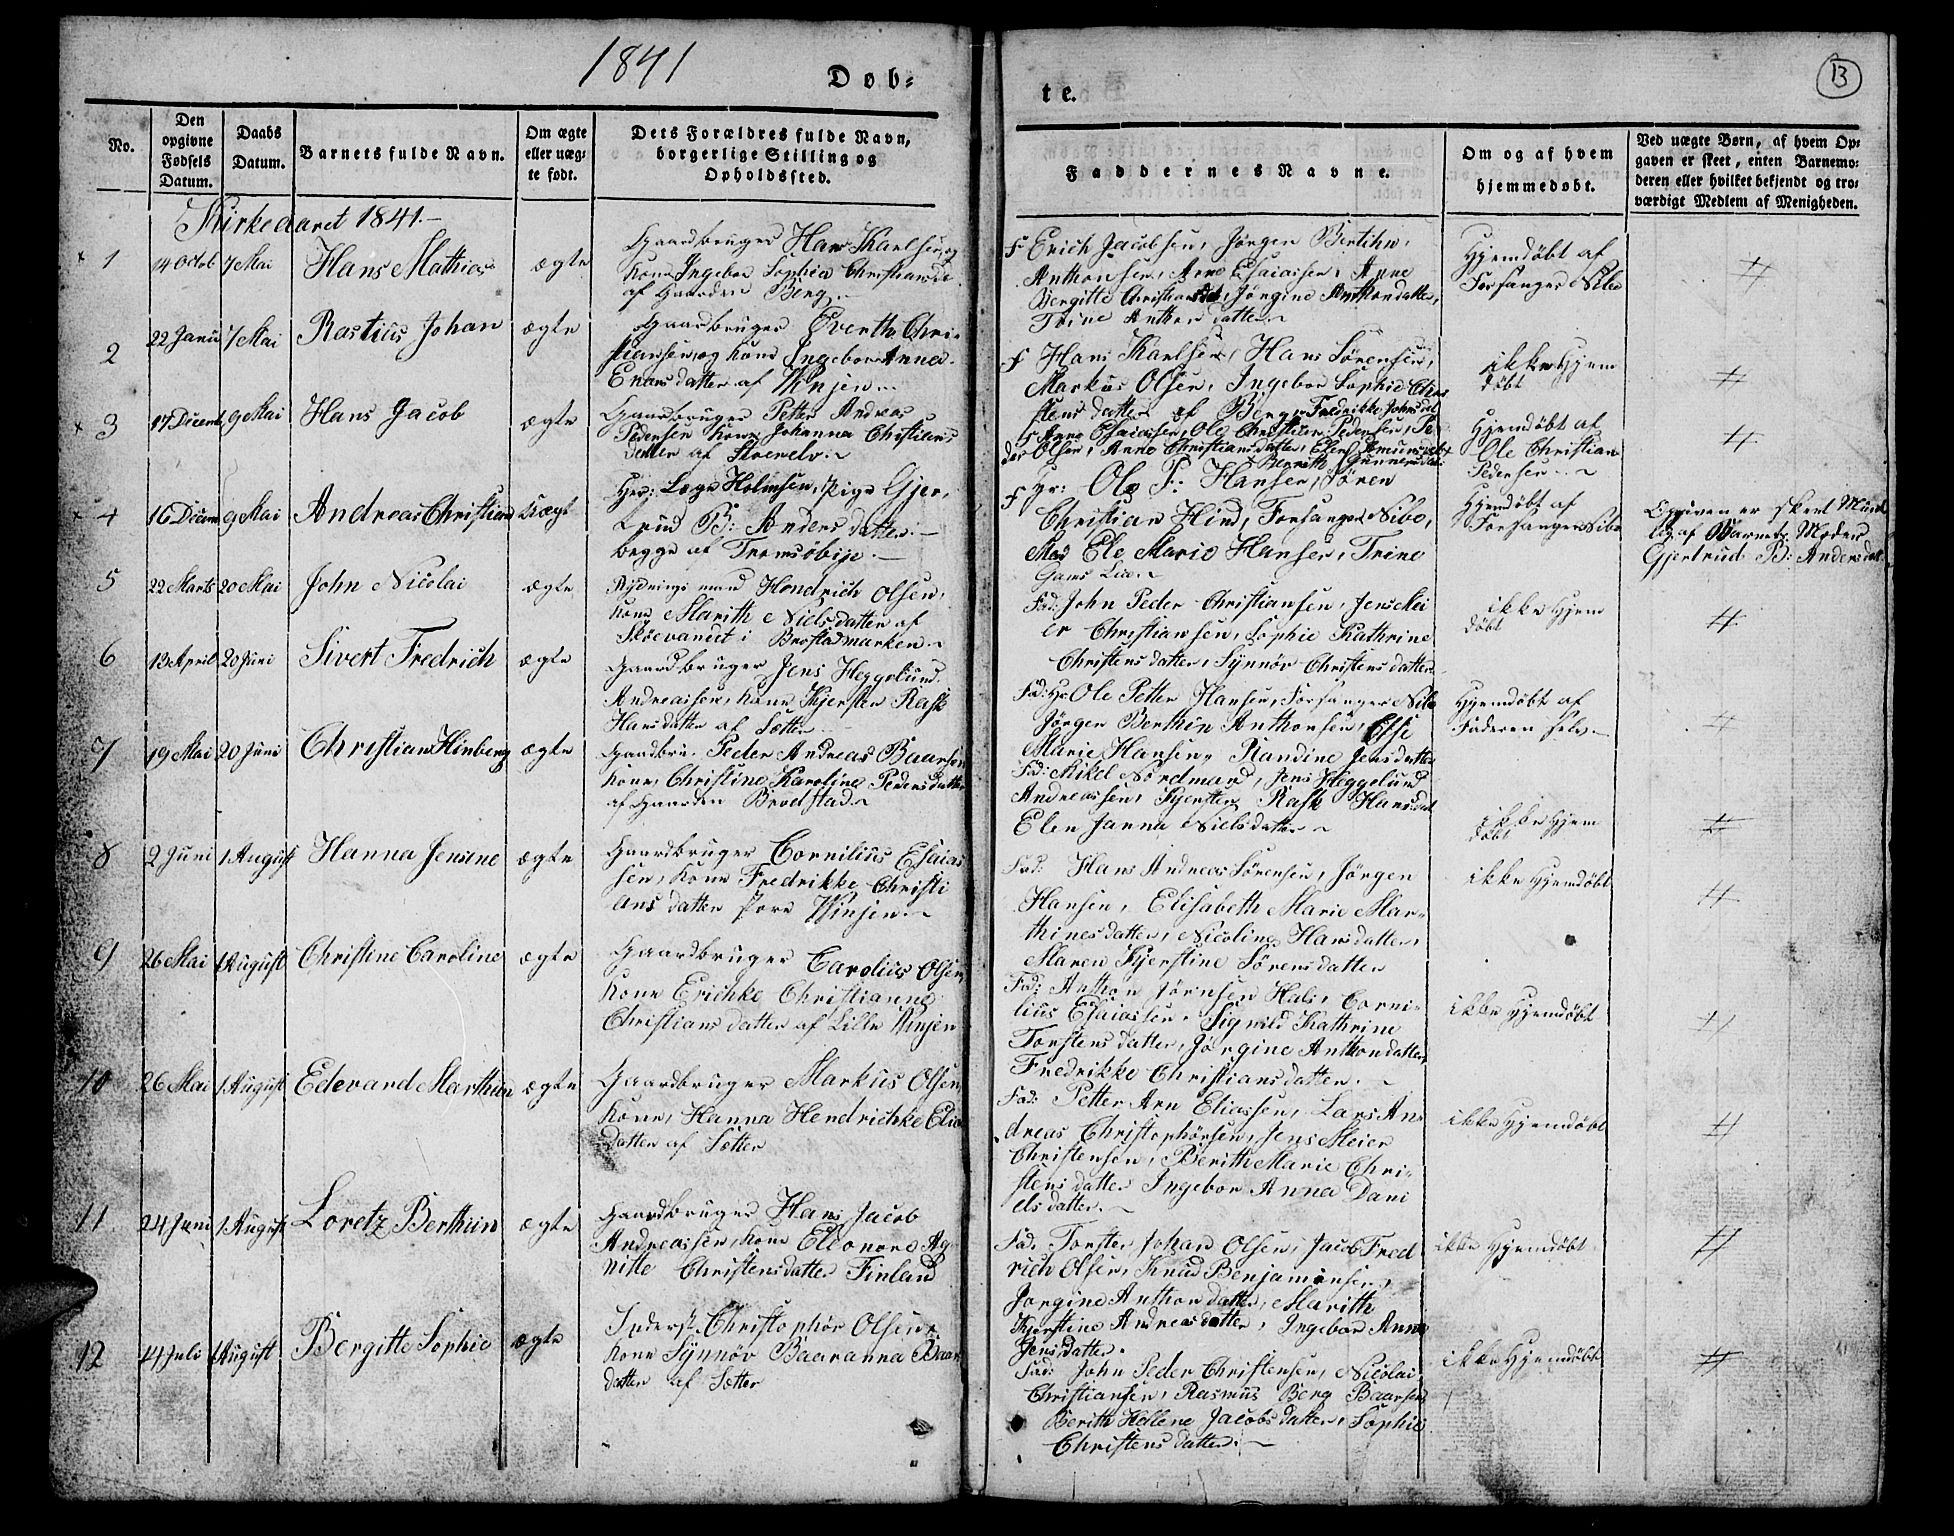 1841
Døb-
te.
13
No.
Den opgivne Fødsels Datum.
Daabs Datum.
Barnets fulde Navn.
Om ægte eller uæg- te født.
Dets Forældres fulde Navn, borgerlige Stilling og Opholdssted.
Faddernes Navne.
Om og af hvem hjemmedøbt.
Ved uægte Børn, af hvem Op- gaven er skeet, enten Barnemo- deren eller hvilket bekjendt og tro- værdigt Medlem af Menigheden.
Kirkeaaret 1841.-
1 14 Octob 7 Mai Hans Mathias ægte
Gaardbruger Hans Karlsen, og
Kone Ingebor Sophia Christiansd
af Gaarden Berg.
F Erich Jacobsen, Jørgen Berthin,
Anthonsen, Arne Esaiassen, Anne
Bergitte Christiansdat, Jørgine Anthondatter,
Trine Anthondatter.
Hjemdøbt af
Forsanger Nibe
#
2 22 Janu 7 Mai Rastius Johan ægte
Gaardbruger Everth Chri-
stiansen, og Kone Ingebor Anna
Enarsdatter af Winjen.
F Hans Karlsen, Hans Sørensen,
Markus Olsen, Ingebor Sophie Chri
stensdatter af Berg, Fredrikke Johnsdat
ikke Hjem
døbt
#
3 17 Decemb 9 Mai Hans Jacob ægte
Gaardbruger Petter Andreas
Pedersen Kone Johanna Christians
datter af
F Arne Esaiassen, Ole Christian Pedersen, Pe-
der Olsen, Anne Christiansdatter, Elen
Berrith Gunnersdat
Hjemdøbt af
Ole Christian
Pedersen
#
4 16 Decem 9 Mai Andreas Christian Uægt
Hr: Læge Holmsen, Pige Gjer-
trud B: Andersdatter
begge af Tromsøbye.
F Hr: Ole P: Hansen, Sören
Christian Hind, Forsanger Nibe,
Mad Ele Marie Hansen, Trine
Hjemdøbt af
Forsanger Nibe
Opgiven er skeet Münd
lig af Barnets Moder
Gjertrud B: Andersdat
5 22 Marts 20 Mai John Nicolai ægte
Rydningsmand Hendrich Olsen,
Kone Marith Nielsdatter af
Skoevandet i Brostadmarken
Fad: John Peder Christiansen, Jens Mei
er Christiansen, Sophie Kathrine
Christensdatter, Synnöv Christensdatter
ikke Hjem
døbt
#
6 13 April 20 Juni Sivert Fredrich ægte
Gaardbruger Jens Heggelund
Andreassen, Kone Kjersten Rask
Hansdatter af Sætter
Fad: Hr Ole Petter Hansen, Forsanger Nibe
Jörgen Berthin Anthonsen, Else
Marie Hansen, Randine Jensdatter
Hjemdøbt af
Faderen selv.
#
7 19 Mai 20 Juni Christian Hinberg ægte
Gaardbru. Peder Andreas Baarsen
Kone, Christine Karoline Pedersdatter
af Gaarden Brodstad
Fad: Mikel Nordmand, Jens Heggelund
Andreassen, Kjersten Rask Hansdat
Elen Janna Nielsdatter
ikke Hjem
døbt
#
8 2 Juni 1 August Hanna Jensine ægte
Gaardbruger Cornilius Esaias
sen, Kone Fredrikke Christi
ans datter store Winjen
Fad: Hans Andreas Sörensen, Jörgen
Hansen, Elisabeth Marie Mar-
thinesdatter, Nicoline Hansdatter,
Maren Kjerstine Sörensdatter
ikke Hjemdøbt
#
9 26 Mai 1 August Christine Caroline ægte
Gaardbruger Carolius Olsen,
Kone Erichke Christianne
Christiansdatter af Lille Winjen
Fad: Anthon Jörnsen Hals, Corni-
lius Esaiassen, Sigwild Kathrine
Torstensdatter, Jørgine Anthondatter,
Fredrikke Christiansdatter.
ikke Hjemdøbt
#
10 26 Mai 1 August Edevard Marthin ægte
Gaardbruger Markus Olsen
Kone, Hanna Hendrichke Elia
datter af Sætter
Fad: Petter Arn Eliassen, Lars An-
dreas Christophørsen, Jens Meier
Christensen, Berith Marie Chri-
stensdatter Ingebor Anna Dani
elsdatter.
ikke Hjemdøbt
#
11 24 Juni 1 August Loretz Berthin ægte
Gaardbruger Hans Jacob
Andreassen, Kone Elonore Ag-
nitte Christensdatter Finland
Fad. Torsten Johan Olsen, Jacob Fred
rich Olsen, Knud Benjaminsen,
Jørgine Anthondatter, Marith
Kjerstine Andreasdatter, Ingebor Anne
Jensdatter.
ikke Hjemdøbt
#
12 14 Juli 1 August Bergitte Sophie ægte
Inderst. Christophör Olsen,
Kone Synnöv Baaranna Baar
datter af Sætter
Fad: John Peder Christensen, Nicolai
Christiansen, Rasmus Berg Baarsen
Berith Hellene Jacobsdatter, Sophie
Christensdatter.
ikke Hjemdøbt
#